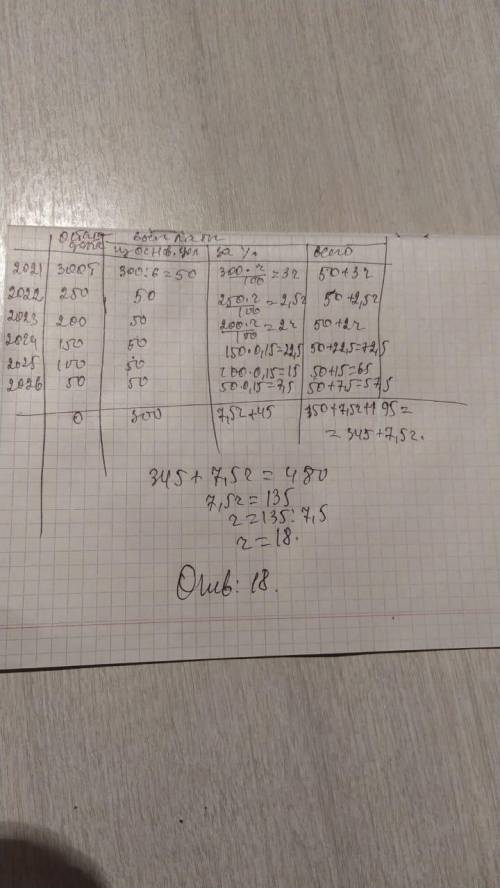 Остат. долга выплаты
из основ. дол за % всего
2021 300Т 300:6=50 300·r/100=3r 50+3r
2022 250 50 250·r/100=2,5r 50+2,5r
2023 200 50 200·r/100=2r 50+2r
2024 150 50 150·0,15=22,5 50+22,5=72,5
2025 100 50 100·0,15=15 50+15=65
2026 50 50 50·0,15=7,5 50+7,5=57,5
0 300 7,5r+45 150+7,5r+195=
=345+7,5r.
345+7,5r=480
7,5r=135
r=135:7,5
r=18.
Отв: 18.